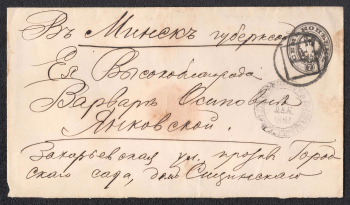 Въ Минскъ губернск
Ея Высокоблагород
Варварѣ Осиповнѣ
Янковской.
Захарьевская ул. противъ Город
скаго сада, домъ Сицинскаго